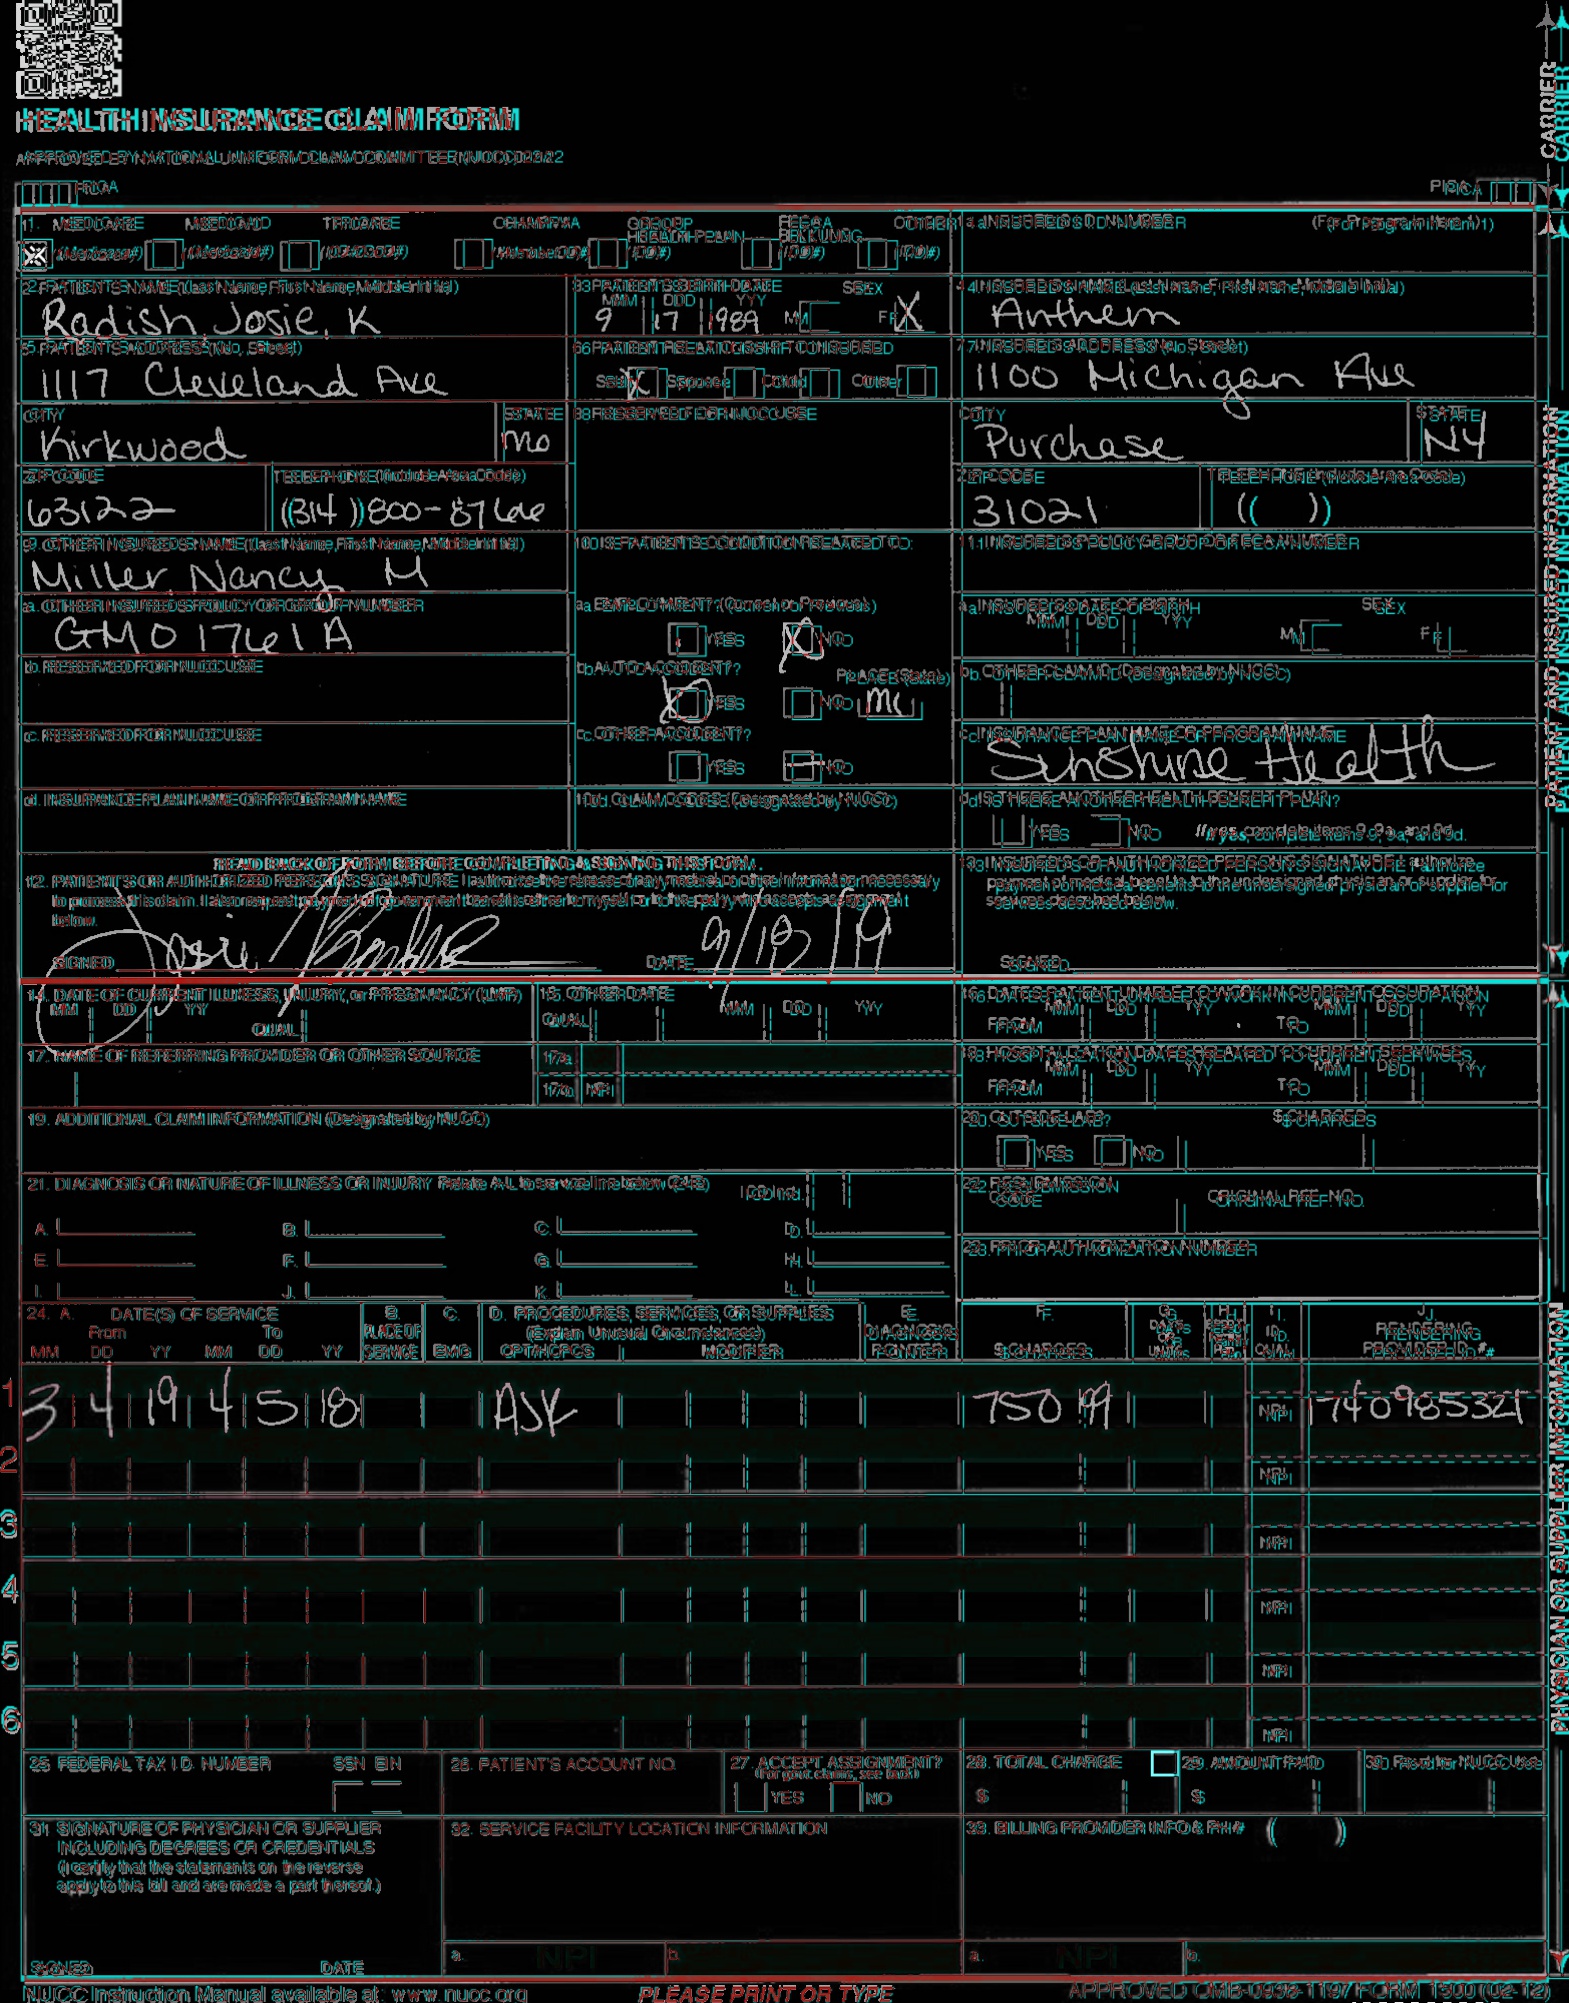 HEALTH INSURANCE CLAIM FORM
APPROVED BY NATIONAL UNIFORM CLAIM COMMITTEE (NUCC) 02/12
PICA
PICA
CARRIER
1. MEDICARE MEDICAID TRICARE CHAMPVA GROUP HEALTH PLAN FECA BLK LUNG OTHER
(Medicare#) (Medicaid#) (ID#/DoD#) (Member ID#) (ID#) (ID#) (ID#)
1a. INSURED'S I.D. NUMBER (For Program in Item 1)
2. PATIENT'S NAME (Last Name, First Name, Middle Initial)
Radish, Josie, K
3. PATIENT'S BIRTH DATE SEX
MM DD YY
9 17 1989 M F X
4. INSURED'S NAME (Last Name, First Name, Middle Initial)
Anthem
5. PATIENT'S ADDRESS (No., Street)
1117 Cleveland Ave
6. PATIENT RELATIONSHIP TO INSURED
Self X Spouse Child Other
7. INSURED'S ADDRESS (No., Street)
1100 Michigan Ave
CITY STATE
Kirkwood MO
8. RESERVED FOR NUCC USE
CITY STATE
Purchase NY
ZIP CODE TELEPHONE (Include Area Code)
63122 (314) 800-8766
ZIP CODE TELEPHONE (Include Area Code)
31021 ( )
9. OTHER INSURED'S NAME (Last Name, First Name, Middle Initial)
Miller, Nancy M
10. IS PATIENT'S CONDITION RELATED TO:
11. INSURED'S POLICY GROUP OR FECA NUMBER
a. OTHER INSURED'S POLICY OR GROUP NUMBER
GMO1761A
a. EMPLOYMENT? (Current or Previous)
YES X NO
a. INSURED'S DATE OF BIRTH SEX
MM DD YY M F
b. RESERVED FOR NUCC USE
b. AUTO ACCIDENT? PLACE (State)
X YES NO
b. OTHER CLAIM ID (Designated by NUCC)
c. RESERVED FOR NUCC USE
c. OTHER ACCIDENT?
YES NO
c. INSURANCE PLAN NAME OR PROGRAM NAME
Sunshine Health
d. INSURANCE PLAN NAME OR PROGRAM NAME
10d. CLAIM CODES (Designated by NUCC)
d. IS THERE ANOTHER HEALTH BENEFIT PLAN?
YES NO If yes, complete items 9, 9a, and 9d.
READ BACK OF FORM BEFORE COMPLETING & SIGNING THIS FORM.
12. PATIENT'S OR AUTHORIZED PERSON'S SIGNATURE I authorize the release of any medical or other information necessary
to process this claim. I also request payment of government benefits either to myself or to the party who accepts assignment
below.
SIGNED Josie DATE 9/18/19
13. INSURED'S OR AUTHORIZED PERSON'S SIGNATURE I authorize
payment of medical benefits to the undersigned physician or supplier for
services described below.
SIGNED
PATIENT AND INSURED INFORMATION
14. DATE OF CURRENT ILLNESS, INJURY, or PREGNANCY (LMP)
MM DD YY QUAL.
15. OTHER DATE
QUAL. MM DD YY
16. DATES PATIENT UNABLE TO WORK IN CURRENT OCCUPATION
MM DD YY MM DD YY
FROM TO
17. NAME OF REFERRING PROVIDER OR OTHER SOURCE
17a.
17b. NPI
18. HOSPITALIZATION DATES RELATED TO CURRENT SERVICES
MM DD YY MM DD YY
FROM TO
19. ADDITIONAL CLAIM INFORMATION (Designated by NUCC)
20. OUTSIDE LAB? $ CHARGES
YES NO
21. DIAGNOSIS OR NATURE OF ILLNESS OR INJURY Relate A-L to service line below (24E) ICD Ind.
A. B. C. D.
E. F. G. H.
I. J. K. L.
22. RESUBMISSION CODE ORIGINAL REF. NO.
23. PRIOR AUTHORIZATION NUMBER
24. A. DATE(S) OF SERVICE B. C. D. PROCEDURES, SERVICES, OR SUPPLIES E. F. G. H. I. J.
From To PLACE OF (Explain Unusual Circumstances) DIAGNOSIS DAYS OR ID. RENDERING
MM DD YY MM DD YY SERVICE EMG CPT/HCPCS MODIFIER POINTER $ CHARGES UNITS QUAL. PROVIDER ID. #
1 3 4 19 4 5 18 ASK 750 99 NPI 1740985321
2 NPI
3 NPI
4 NPI
5 NPI
6 NPI
PHYSICIAN OR SUPPLIER INFORMATION
25. FEDERAL TAX I.D. NUMBER SSN EIN
26. PATIENT'S ACCOUNT NO.
27. ACCEPT ASSIGNMENT?
(For govt. claims, see back)
YES NO
28. TOTAL CHARGE
$
29. AMOUNT PAID
$
30. Rsvd for NUCC Use
31. SIGNATURE OF PHYSICIAN OR SUPPLIER
INCLUDING DEGREES OR CREDENTIALS
(I certify that the statements on the reverse
apply to this bill and are made a part thereof.)
SIGNED DATE
32. SERVICE FACILITY LOCATION INFORMATION
a. NPI b.
33. BILLING PROVIDER INFO & PH # ( )
a. NPI b.
NUCC Instruction Manual available at: www.nucc.org
PLEASE PRINT OR TYPE
APPROVED OMB-0938-1197 FORM 1500 (02-12)